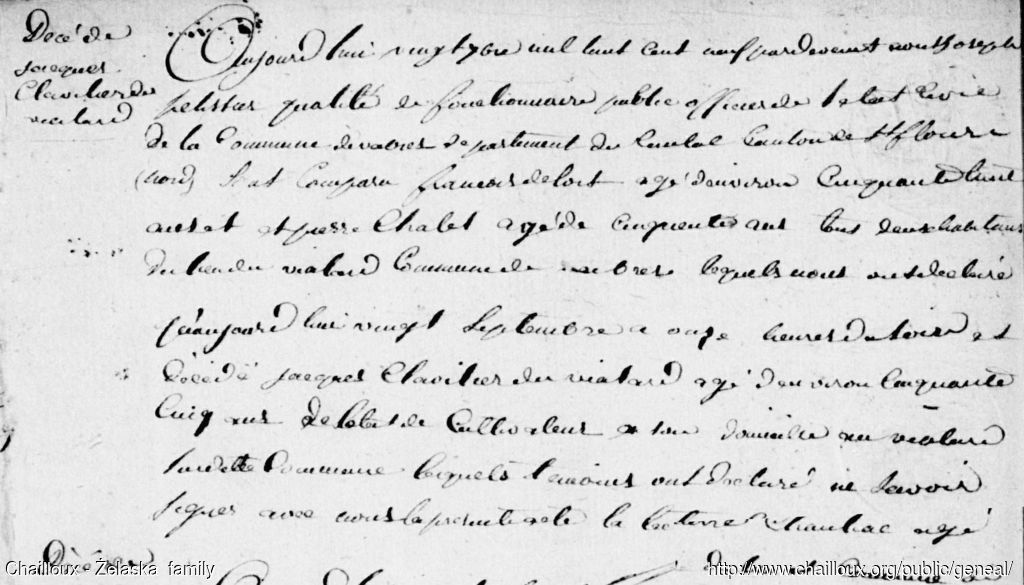 Décé de
jacques
Clavilier du
vialard
Aujourd hui vingt 7bre mil huit cent neuf pardevant nous Joseph
pelissier qualité de fonctionnaire public officier de l etat Civile
de la Commune de vabres departement du Cantal Canton de St flour
(nord) Est Comparu francois delort agé d'environ Cinquante huit
ans et pierre Chalet agé de cinquente ans tous deux habitans
du lieu du vialard Commune de vabres lequels nous ont declaré
aujourd hui vingt Septembre a onze heures du soire est
Décédé jacques Clavilier du vialard agé d environ Cinquante
Cinq ans de l etat de Cultivateur a son domicille au vialard
Commune lesquels temoins ont declaré ne Savoir
signer avec nous le present acte la lecture
Décé
Chailloux - Żelaska family
http://www.chailloux.org/public/geneal/